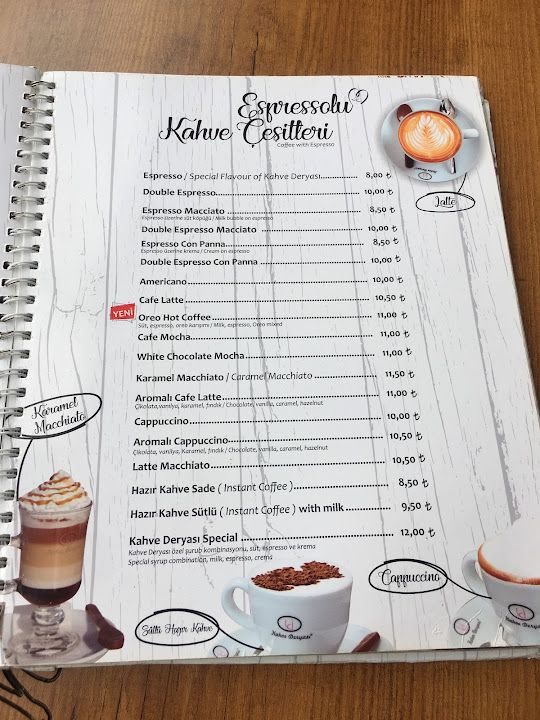 Espressolu
Kahve Çesitleri
Coffee with Espresso
Latte
Espresso / Special Flavour of Kahve Deryası 8,00 ₺
Double Espresso 10,00 ₺
Espresso Macciato 8,50 ₺
Espresso üzerine süt köpüğü / Milk bubble on espresso
Double Espresso Macciato 10,00 ₺
Espresso Con Panna 8,50 ₺
Espresso üzerine krema / Cream on espresso
Double Espresso Con Panna 10,00 ₺
Americano 10,00 ₺
Cafe Latte 10,50 ₺
YENİ
Oreo Hot Coffee 11,00 ₺
Süt, espresso, oreo karışımı / Milk, espresso, Oreo mixed
Cafe Mocha 11,00 ₺
White Chocolate Mocha 11,00 ₺
Karamel Macchiato / Caramel Macchiato 11,50 ₺
Aromalı Cafe Latte 11,00 ₺
Çikolata, vanilya, karamel, fındık / Chocolate, vanilla, caramel, hazelnut
Cappuccino 10,00 ₺
Aromalı Cappuccino 10,50 ₺
Çikolata, vanilya, Karamel, fındık / Chocolate, vanilla, caramel, hazelnut
Latte Macchiato 10,50 ₺
Hazır Kahve Sade ( Instant Coffee ) 8,50 ₺
Hazır Kahve Sütlü ( Instant Coffee ) with milk 9,50 ₺
Kahve Deryası Special 12,00 ₺
Kahve Deryası özel şurup kombinasyonu, süt, espresso ve krema
Special syrup combination, milk, espresso, crema
Karamel
Macchiato
Cappuccino
Sütlü Hazır Kahve
Kahve Deryası
Kahve Deryası